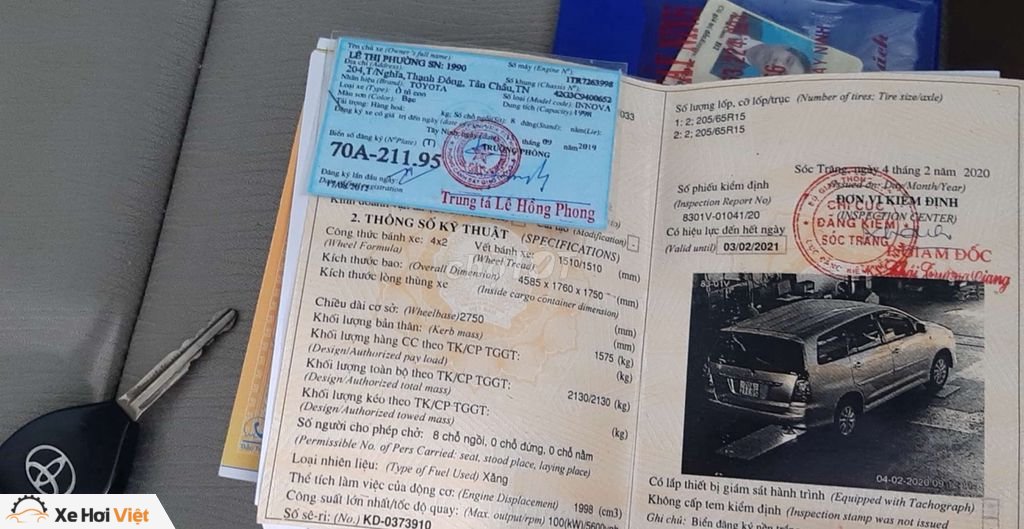 Tên chủ xe (Owner's full name)
LÊ THỊ PHƯỜNG SN: 1990
Địa chỉ (Address):
204,T/Nghĩa,Thạnh Đông, Tân Châu,TN
Nhãn hiệu (Brand): TOYOTA
Loại xe (Type): Ô tô con
Màu sơn (Color): Bạc
Tải trọng: Hàng hoá: kg; Số chỗ ngồi (Sit): 8 đứng (Stand): nằm (Lie):
Số máy (Engine N°)
1TR7263998
Số khung (Chassis N°)
42G3C9400652
Số loại (Model code): INNOVA
Dung tích (Capacity): 1998
Tây Ninh
tháng 09 năm 2019
TRƯỞNG PHÒNG
Biển số đăng ký (N° Plate) (T)
70A-211.95
Đăng ký lần đầu ngày
Trung tá Lê Hồng Phong
033
(Modification) -
2. THÔNG SỐ KỸ THUẬT (SPECIFICATIONS)
Công thức bánh xe: 4x2 Vết bánh xe: 1510/1510 (mm)
(Wheel Formula) (Wheel Tread)
Kích thước bao: (Overall Dimension) 4585 x 1760 x 1750 (mm)
Kích thước lòng thùng xe (Inside cargo container dimension)
(mm)
Chiều dài cơ sở: (Wheelbase)2750 (mm)
Khối lượng bản thân: (Kerb mass) 1575 (kg)
Khối lượng hàng CC theo TK/CP TGGT: (kg)
(Design/Authorized pay load)
Khối lượng toàn bộ theo TK/CP TGGT: 2130/2130 (kg)
(Design/Authorized total mass)
Khối lượng kéo theo TK/CP TGGT: (kg)
(Design/Authorized towed mass)
Số người cho phép chở: 8 chỗ ngồi, 0 chỗ đứng, 0 chỗ nằm
(Permissible No. of Pers Carried: seat, stood place, laying place)
Loại nhiên liệu: (Type of Fuel Used) Xăng
Thể tích làm việc của động cơ: (Engine Displacement) 1998 (cm3)
Công suất lớn nhất/tốc độ quay: (Max. output/rpm) 100(kW)/5600
Số sê-ri: (No.) KD-0373910
Số lượng lốp, cỡ lốp/trục (Number of tires; Tire size/axle)
1: 2; 205/65R15
2: 2; 205/65R15
Sóc Trăng, ngày 4 tháng 2 năm 2020
(Issued on: Day/Month/Year)
Số phiếu kiểm định
(Inspection Report No)
8301V-01041/20
ĐƠN VỊ KIỂM ĐỊNH
(INSPECTION CENTER)
Có hiệu lực đến hết ngày
(Valid until) 03/02/2021
CHI CỤC
ĐĂNG KIỂM
SÓC TRĂNG
GIÁM ĐỐC
04-02-2020
Có lắp thiết bị giám sát hành trình (Equipped with Tachograph)
Không cấp tem kiểm định (Inspection stamp was not issued)
Ghi chú: Biển đăng ký nền
Xe Hơi Việt